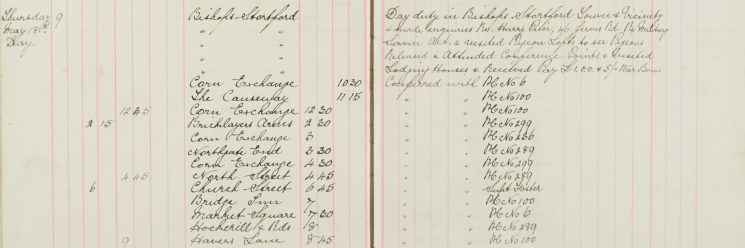 Thursday 9 Bishops Stortford Day duty in Bishops Stortford Town & Vicinity
May 18th " " & made enquiries Re. Harry Palor, Rd. Re Military
Day. " " Service Act. & visited Pigeon Loft. to see Pigeons
" " Released & Attended Conference Points & visited
" " Lodging Houses & Received Pay £1.0.0 & 5/- War Bonus.
Corn Exchange 10 30 Conferred with PC No 6
The Causeway 11 15 " " PC No 100
12 45 Corn Exchange 12 30 " " PC No 100
2 15 Bricklayers Arms 2 30 " " PC No 299
Corn Exchange 3 " " PC No 256
Northgate End 3 30 " " PC No 289
Corn Exchange 4 30 " " PC No 299
4 45 North Street 4 45 " " PC No 289
6 Church Street 6 45 " " Supt Foster
Bridge Inn 7 " " PC No 100
Market Square 7 30 " " PC No 6
Hockerill X Rds 8 " " PC No 289
9 Havers Lane 8 45 " " PC No 100